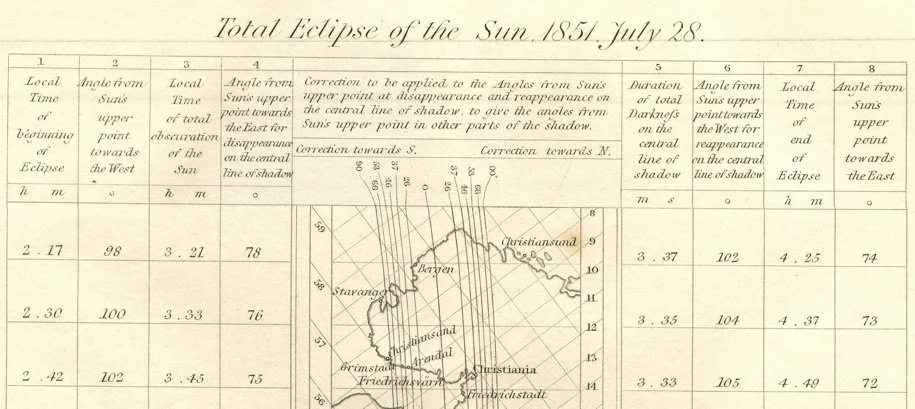 Total Eclipse of the Sun 1851, July 28.
1 2 3 4 5 6 7 8
Local
Time
of
beginning
of
Eclipse
Angle from
Sun's
upper
point
towards
the West
Local
Time
of total
obscuration
of the
Sun
Angle from
Sun's upper
point towards
the East for
disappearance
on the central
line of shadow
Correction to be applied to the Angles from Sun's
upper point at disappearance and reappearance on
the central line of shadow, to give the angles from
Sun's upper point in other parts of the shadow.
Correction towards S. Correction towards N.
Duration
of total
Darkness
on the
central
line of
shadow
Angle from
Sun's upper
point towards
the West for
reappearance
on the central
line of shadow
Local
Time
of
end
of
Eclipse
Angle from
Sun's
upper
point
towards
the East
h m o h m o m s o h m o
90 66 53 46 37 26 0 26 37 46 53 66 90°
59 8
Christiansund 9
2 . 17 98 3 . 21 78 3 . 37 102 4 . 25 74
Bergen 10
58 Stavanger 11
2 . 30 100 3 . 33 76 3 . 35 104 4 . 37 73
12
57 Christiansand
Arendal 13
Grimstadt Christiania
2 . 42 102 3 . 45 75 3 . 33 105 4 . 49 72
Friedrichsvärn 14
Friedrichstadt
56